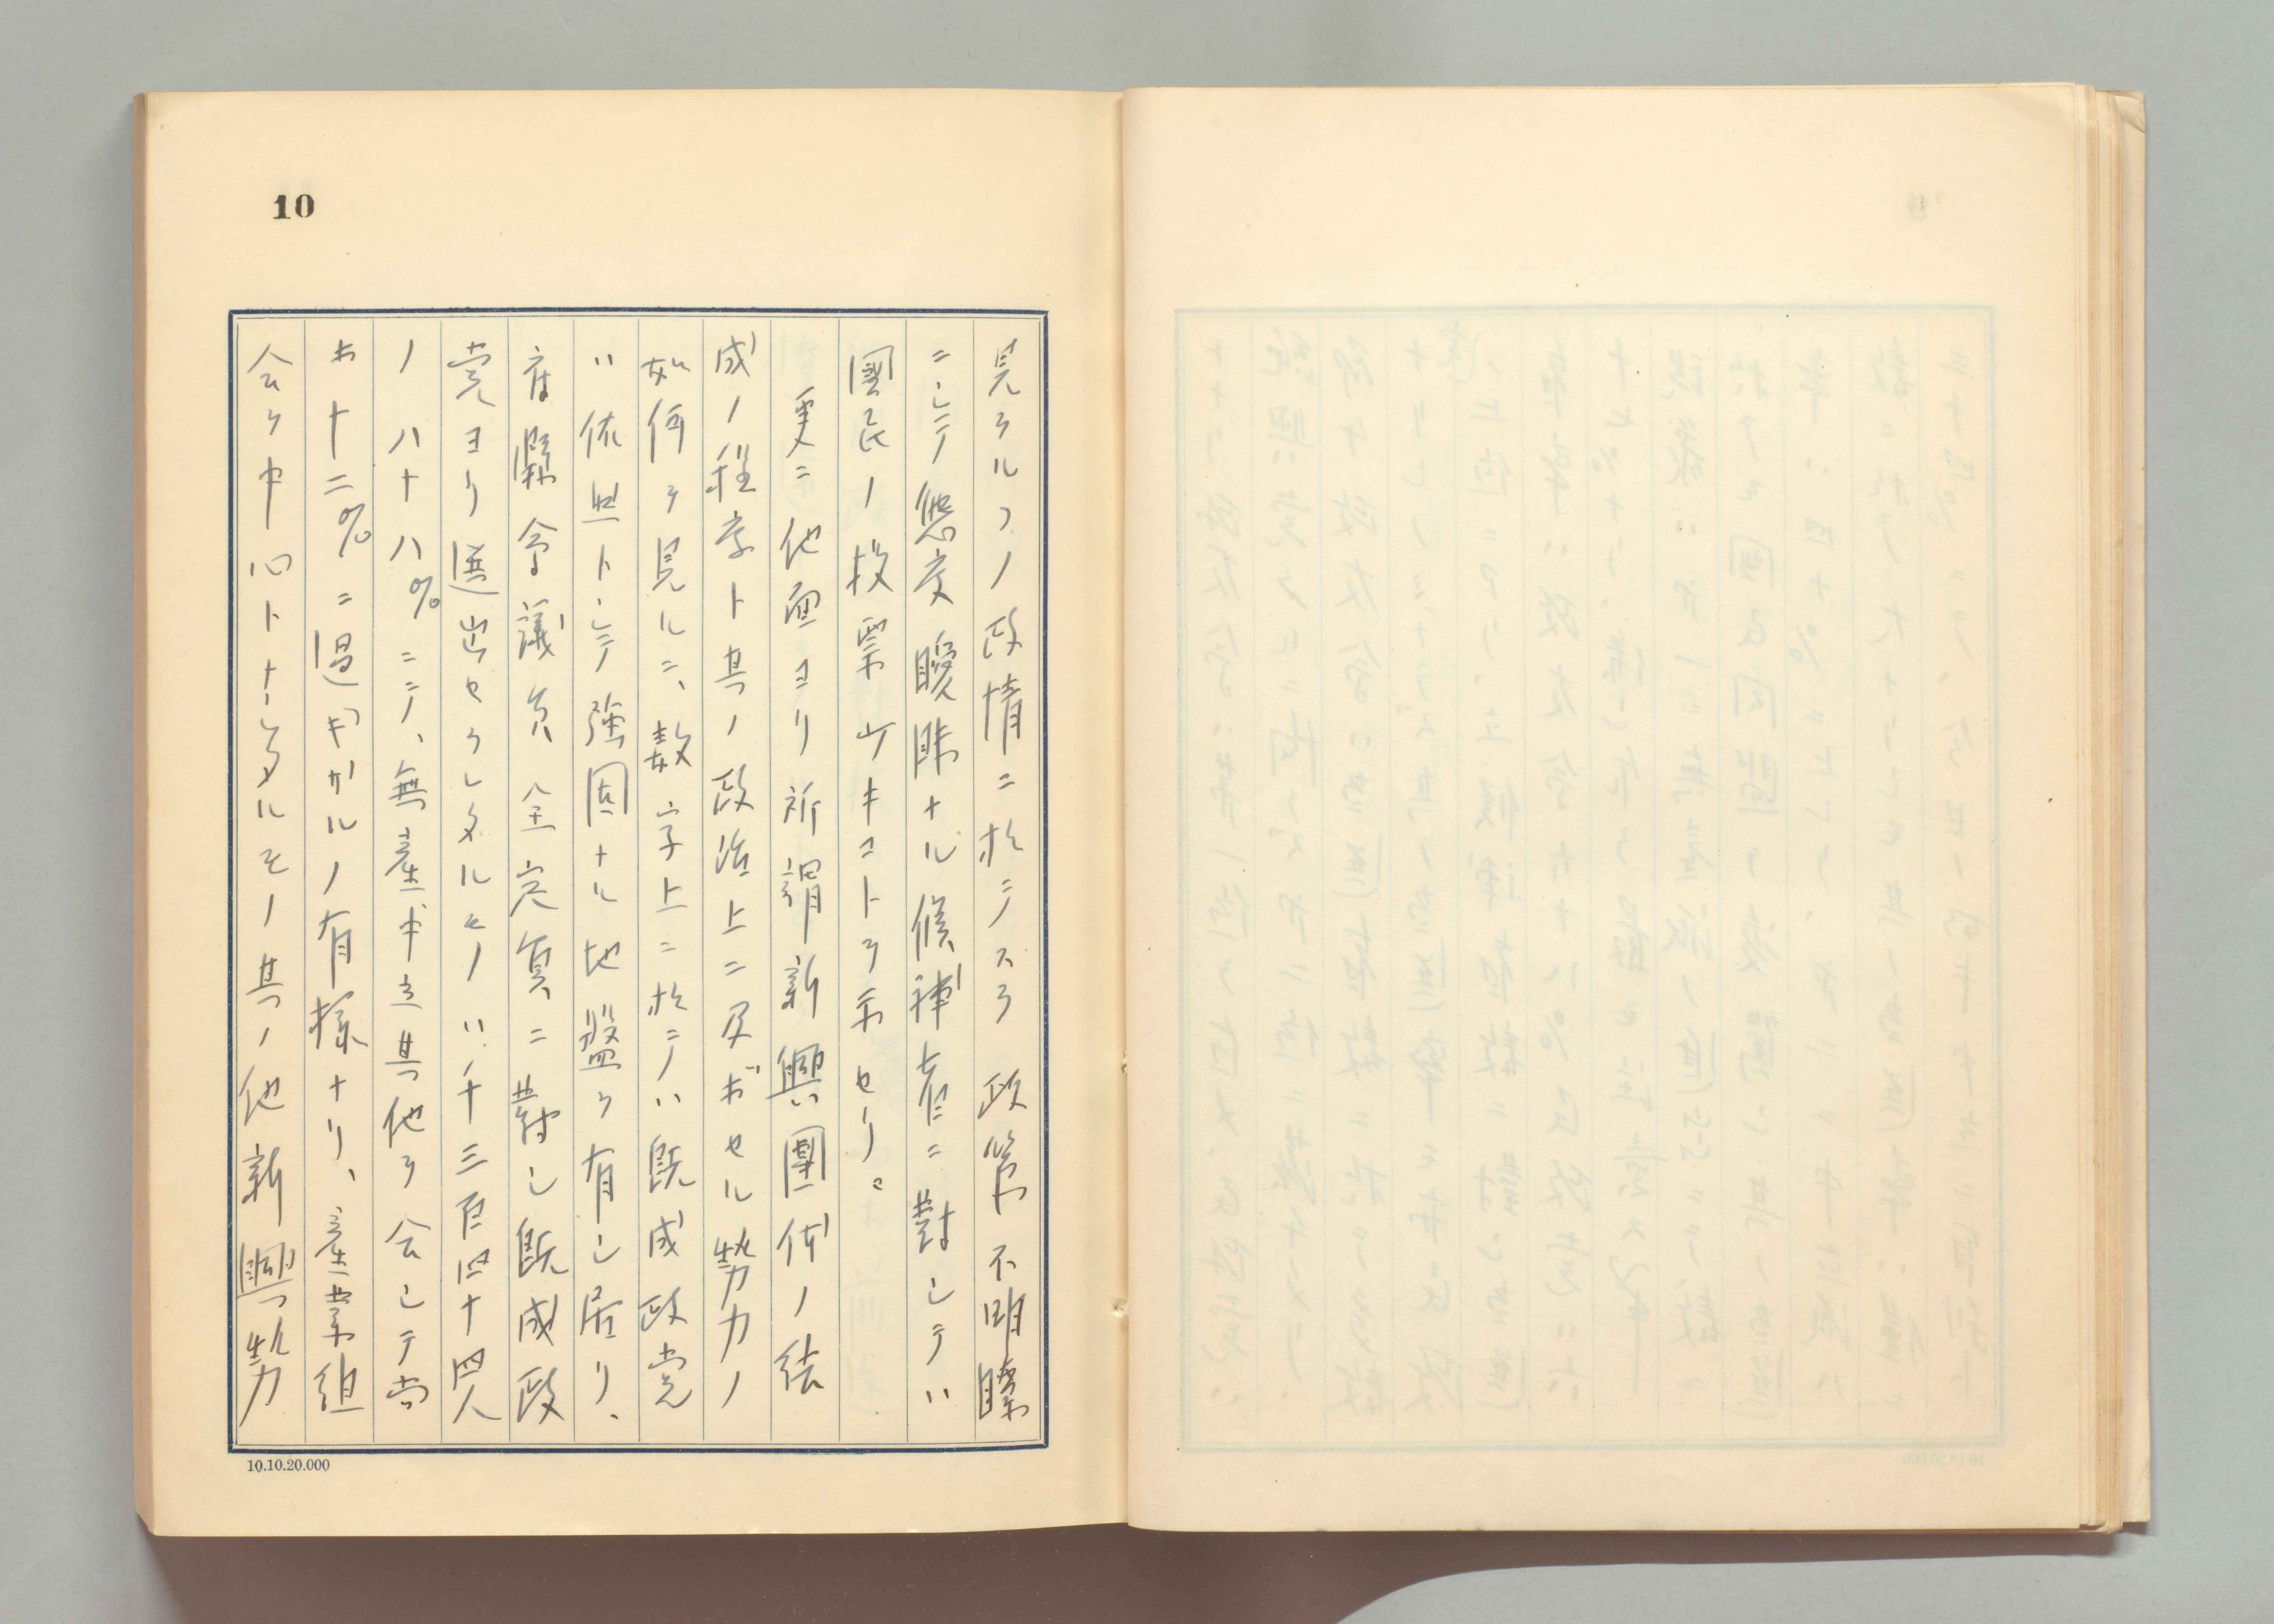 10
見ラルゝノ政情ニ於テスラ政策不明瞭
ニシテ態度曖昧ナル候補者ニ對シテハ
國民ノ投票少キコトヲ示セリ。
更ニ他面ヨリ所謂新興團体ノ結
成ノ程度ト其ノ政治上ニ及ボセル勢力ノ
如何ヲ見ルニ、数字上ニ於テハ既成政党
ハ依然トシテ強固ナル地盤ヲ有シ居リ、
府縣会議員全定員ニ對シ既成政
党ヨリ選出セラレタルモノハ千三百四十四人
ノ八十八%ニシテ、無産中立其他ヲ会シテ尚
ホ十二%ニ過ギザルノ有様ナリ、産業組
会ヲ中心トナシタルモノ其ノ他新興勢
10.10.20.000